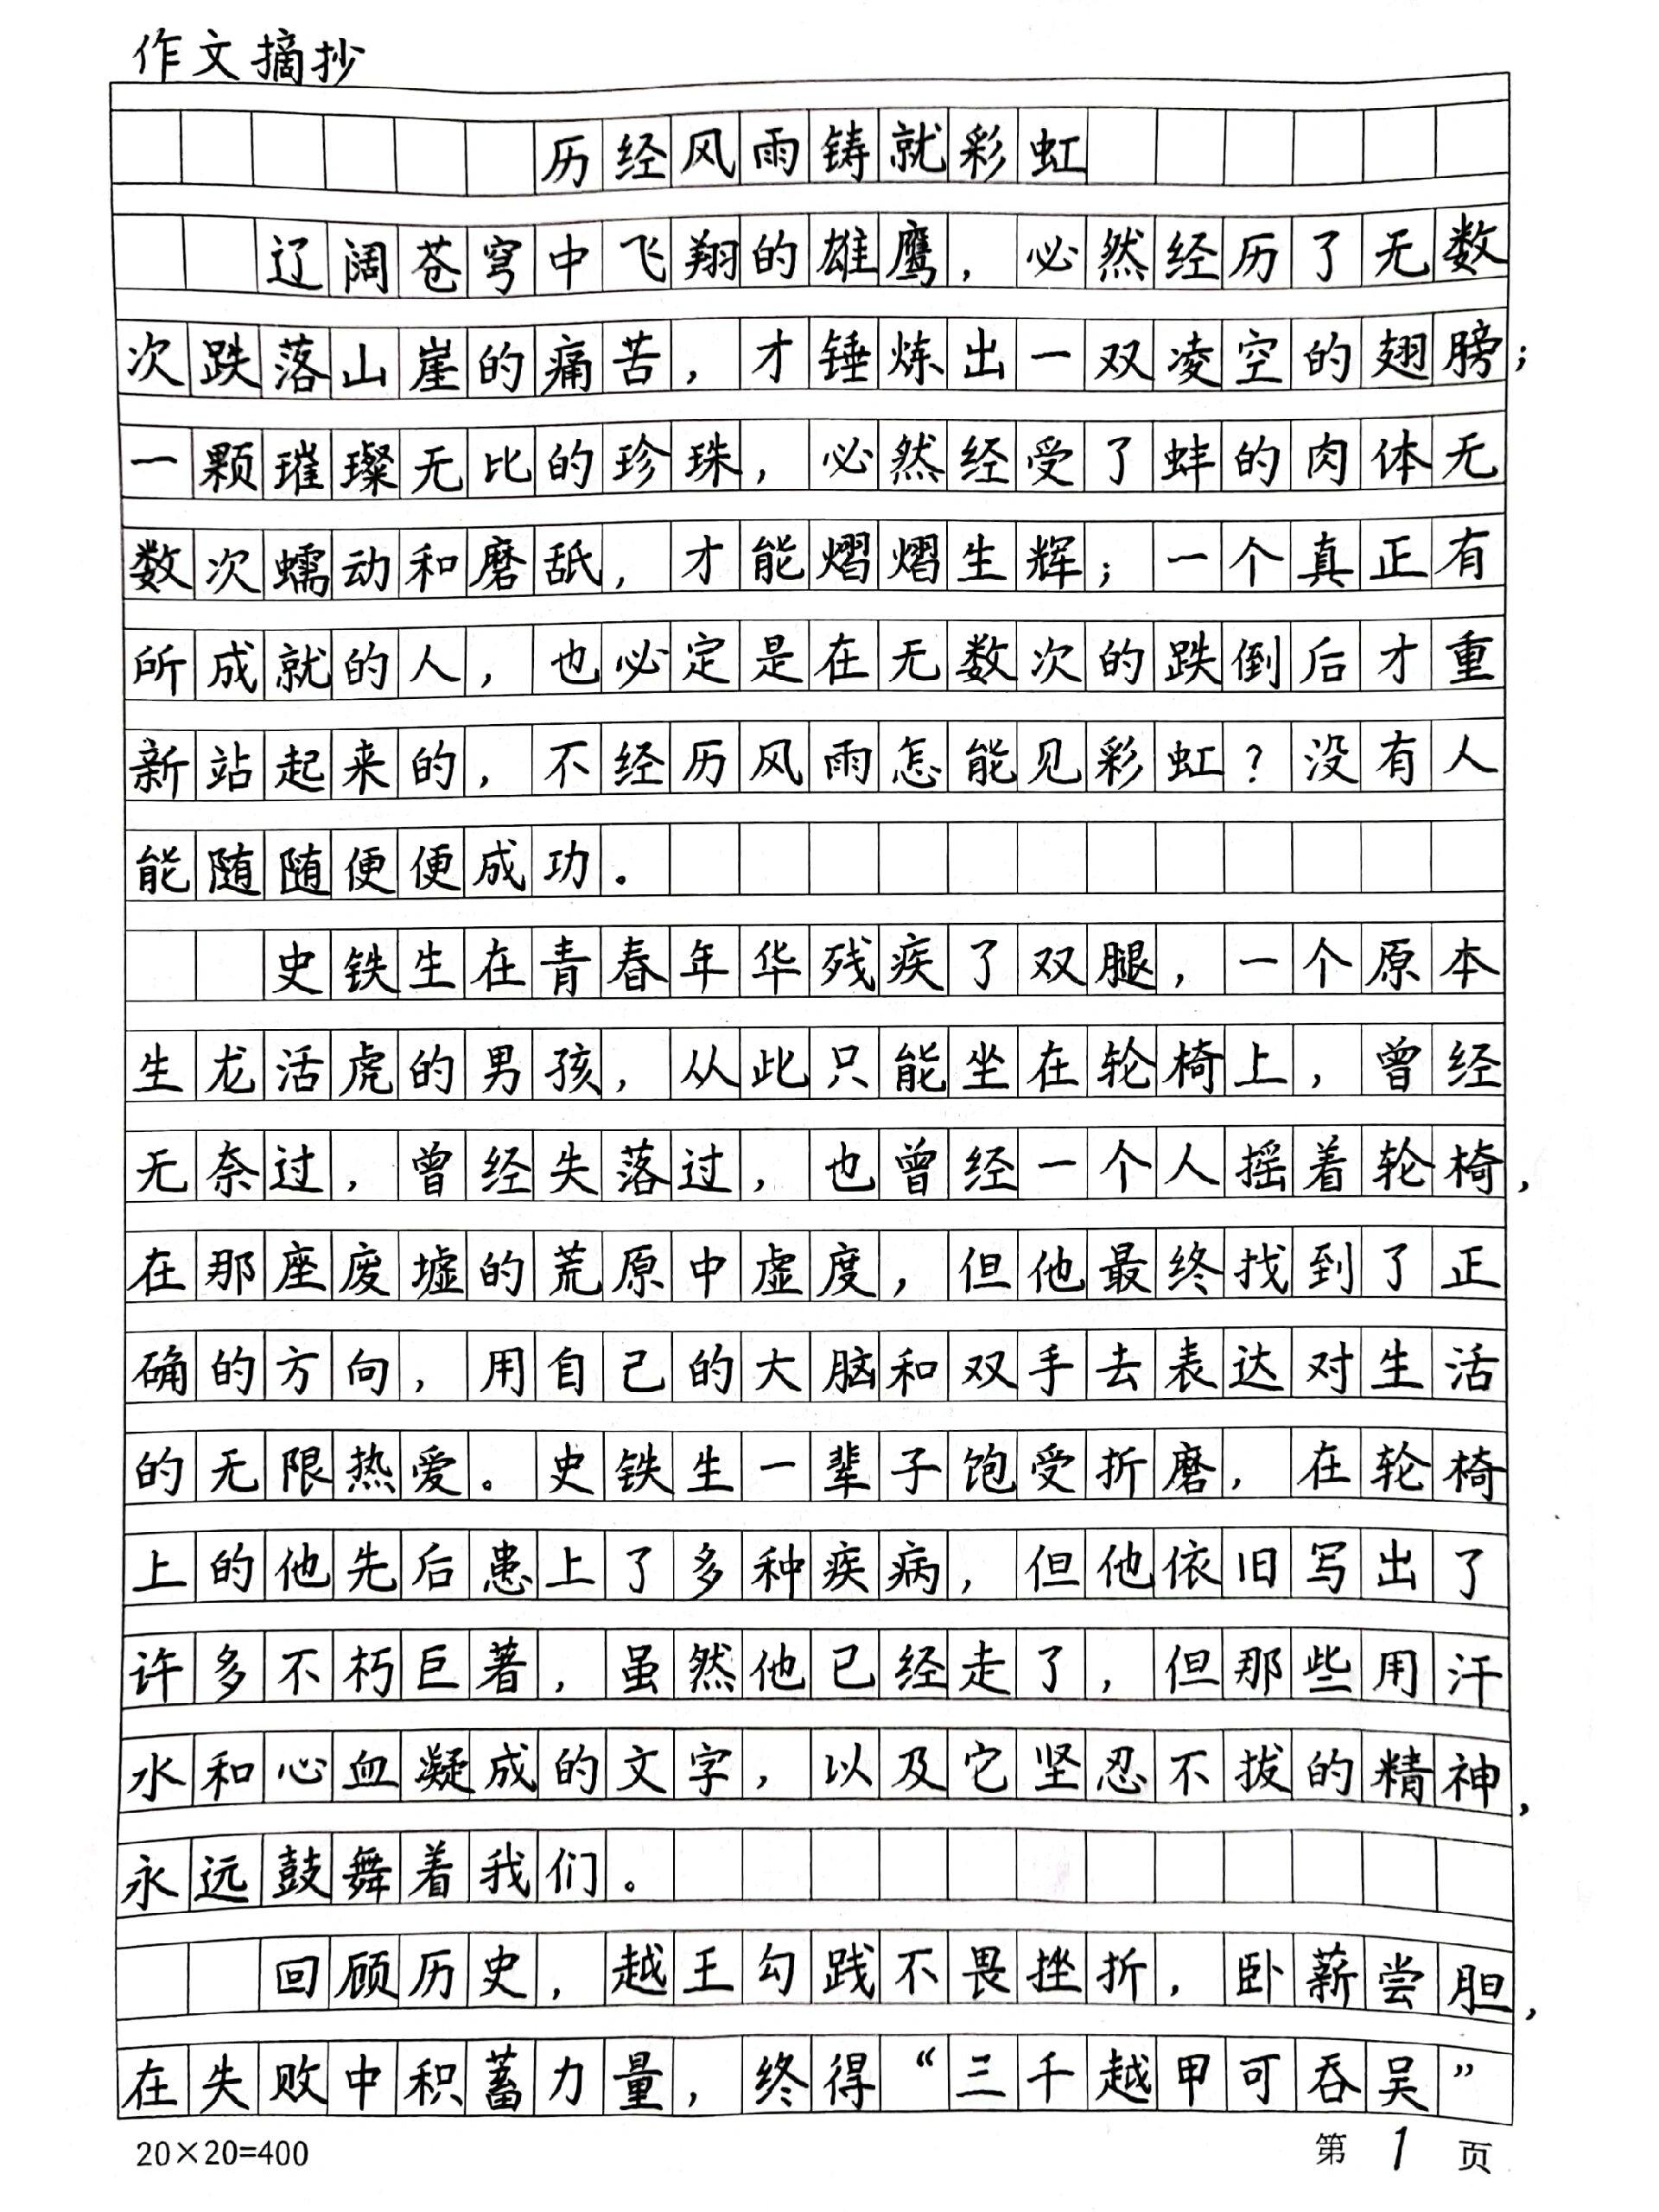 作文摘抄
历经风雨铸就彩虹
辽阔苍穹中飞翔的雄鹰，必然经历了无数
次跌落山崖的痛苦，才锤炼出一双凌空的翅膀；
一颗璀璨无比的珍珠，必然经受了蚌的肉体无
数次蠕动和磨舐，才能熠熠生辉；一个真正有
所成就的人，也必定是在无数次的跌倒后才重
新站起来的，不经历风雨怎能见彩虹？没有人
能随随便便成功。
史铁生在青春年华残疾了双腿，一个原本
生龙活虎的男孩，从此只能坐在轮椅上，曾经
无奈过，曾经失落过，也曾经一个人摇着轮椅，
在那座废墟的荒原中虚度，但他最终找到了正
确的方向，用自己的大脑和双手去表达对生活
的无限热爱。史铁生一辈子饱受折磨，在轮椅
上的他先后患上了多种疾病，但他依旧写出了
许多不朽巨著，虽然他已经走了，但那些用汗
水和心血凝成的文字，以及它坚忍不拔的精神，
永远鼓舞着我们。
回顾历史，越王勾践不畏挫折，卧薪尝胆，
在失败中积蓄力量，终得“三千越甲可吞吴”
20×20=400 第 1 页